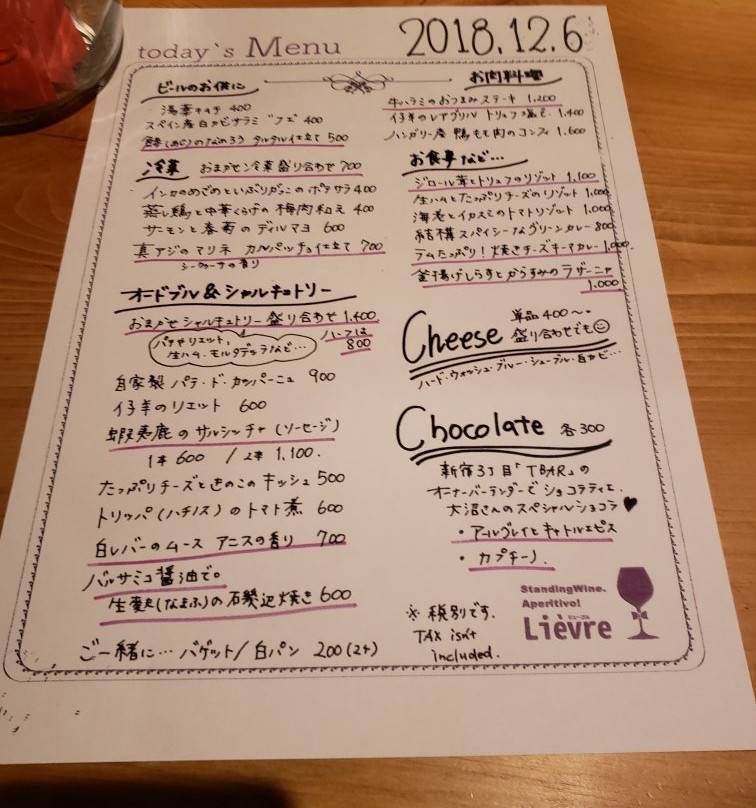 today's Menu
2018.12.6
ビールのお供に
湯葉キムチ 400
スペイン産白カビサラミ "フエ" 400
鯵(あじ)のなめろう タルタル仕立て 500
冷菜 おまかせ冷菜盛り合わせ 700
インカのめざめといぶりがっこのポテサラ 400
蒸し鶏と中華くらげの梅肉和え 400
サーモンと春菊のディルマヨ 600
真アジのマリネ カルパッチョ仕立て 700
シークワーサーの香り
オードブル&シャルキュトリー
おまかせシャルキュトリー盛り合わせ 1,400
ハーフは 800
パテやリエット、
生ハム、モルタデッラなど…
自家製 パテ・ド・カンパーニュ 900
仔羊のリエット 600
蝦夷鹿のサルシッチャ(ソーセージ)
1本 600 / 2本 1,100.
たっぷりチーズときのこのキッシュ 500
トリッパ(ハチノス)のトマト煮 600
白レバーのムース アニスの香り 700
バルサミコ醤油で。
生麩(なまふ)の石磯辺焼き 600
ご一緒に… バゲット/白パン 200(2ヶ)
お肉料理
牛ハラミのおつまみステーキ 1,200
仔羊のレアグリル トリュフ塩で. 1,400
ハンガリー産 鴨もも肉のコンフィ 1,600
お食事など…
ジロール茸とトリュフのリゾット 1,100
生ハムとたっぷりチーズのリゾット 1,000
海老とイカスミのトマトリゾット 1,000
結構スパイシーなグリーンカレー 800
ラムたっぷり!焼きチーズキーマカレー 1,000.
釜揚げしらすとからすみのラザーニャ
1,000
Cheese 単品400〜.
盛り合わせでも
ハード・ウォッシュ・ブルー・シェーブル・白カビ…
Chocolate 各300
新宿3丁目「TBAR」の
オーナーバーテンダーで ショコラティエ、
大沼さんのスペシャルショコラ♥
・アールグレイとキャトルエピス
・カプチーノ
※ 税別です.
TAX isn't
included.
StandingWine.
Aperitivo!
Lièvre